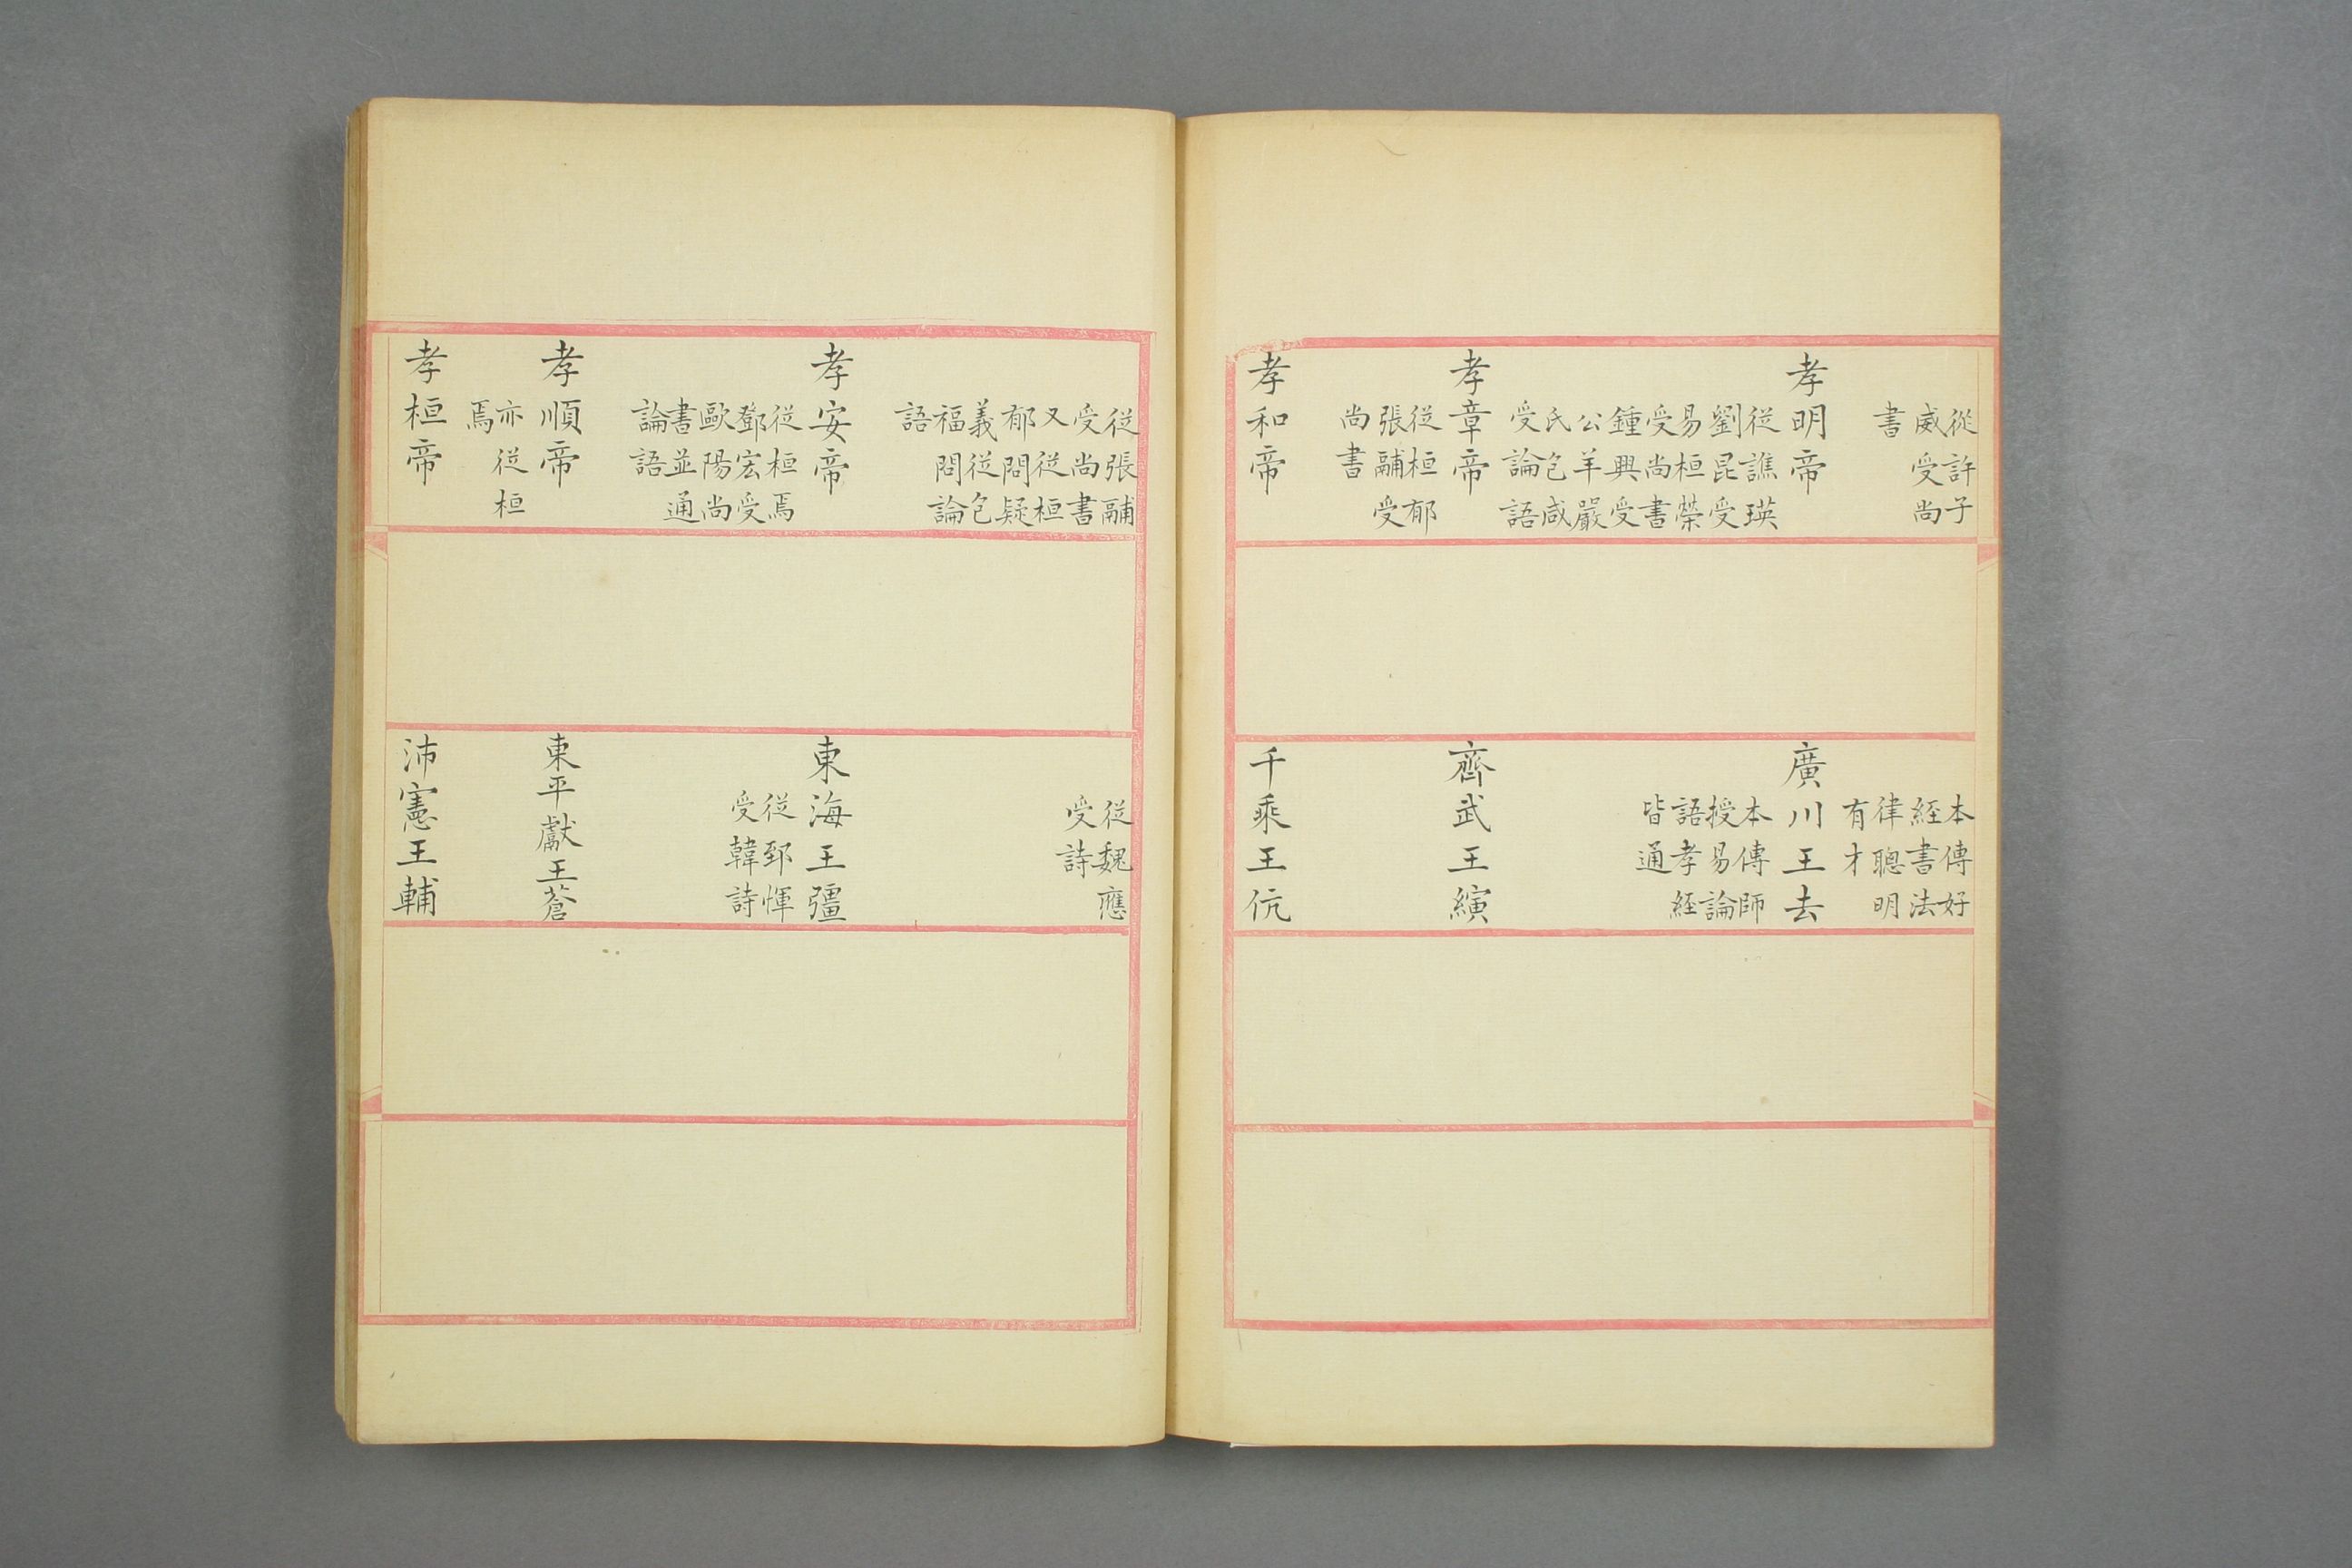 從許子
威受尚
書
孝明帝
從譙瑛
劉昆受
易桓榮
受尚書
鍾興受
公羊嚴
氏包咸
受論語
孝章帝
從桓郁
張酺受
尚書
孝和帝
本傳好
經書法
律聰明
有才
廣川王去
本傳師
授易論
語孝經
皆通
齊武王縯
千乘王伉
從張酺
受尚書
又從桓
郁問疑
義從包
福問論
語
孝安帝
從桓焉
鄧宏受
歐陽尚
書並通
論語
孝順帝
亦從桓
焉
孝桓帝
從魏應
受詩
東海王彊
從郅惲
受韓詩
東平獻王蒼
沛憲王輔